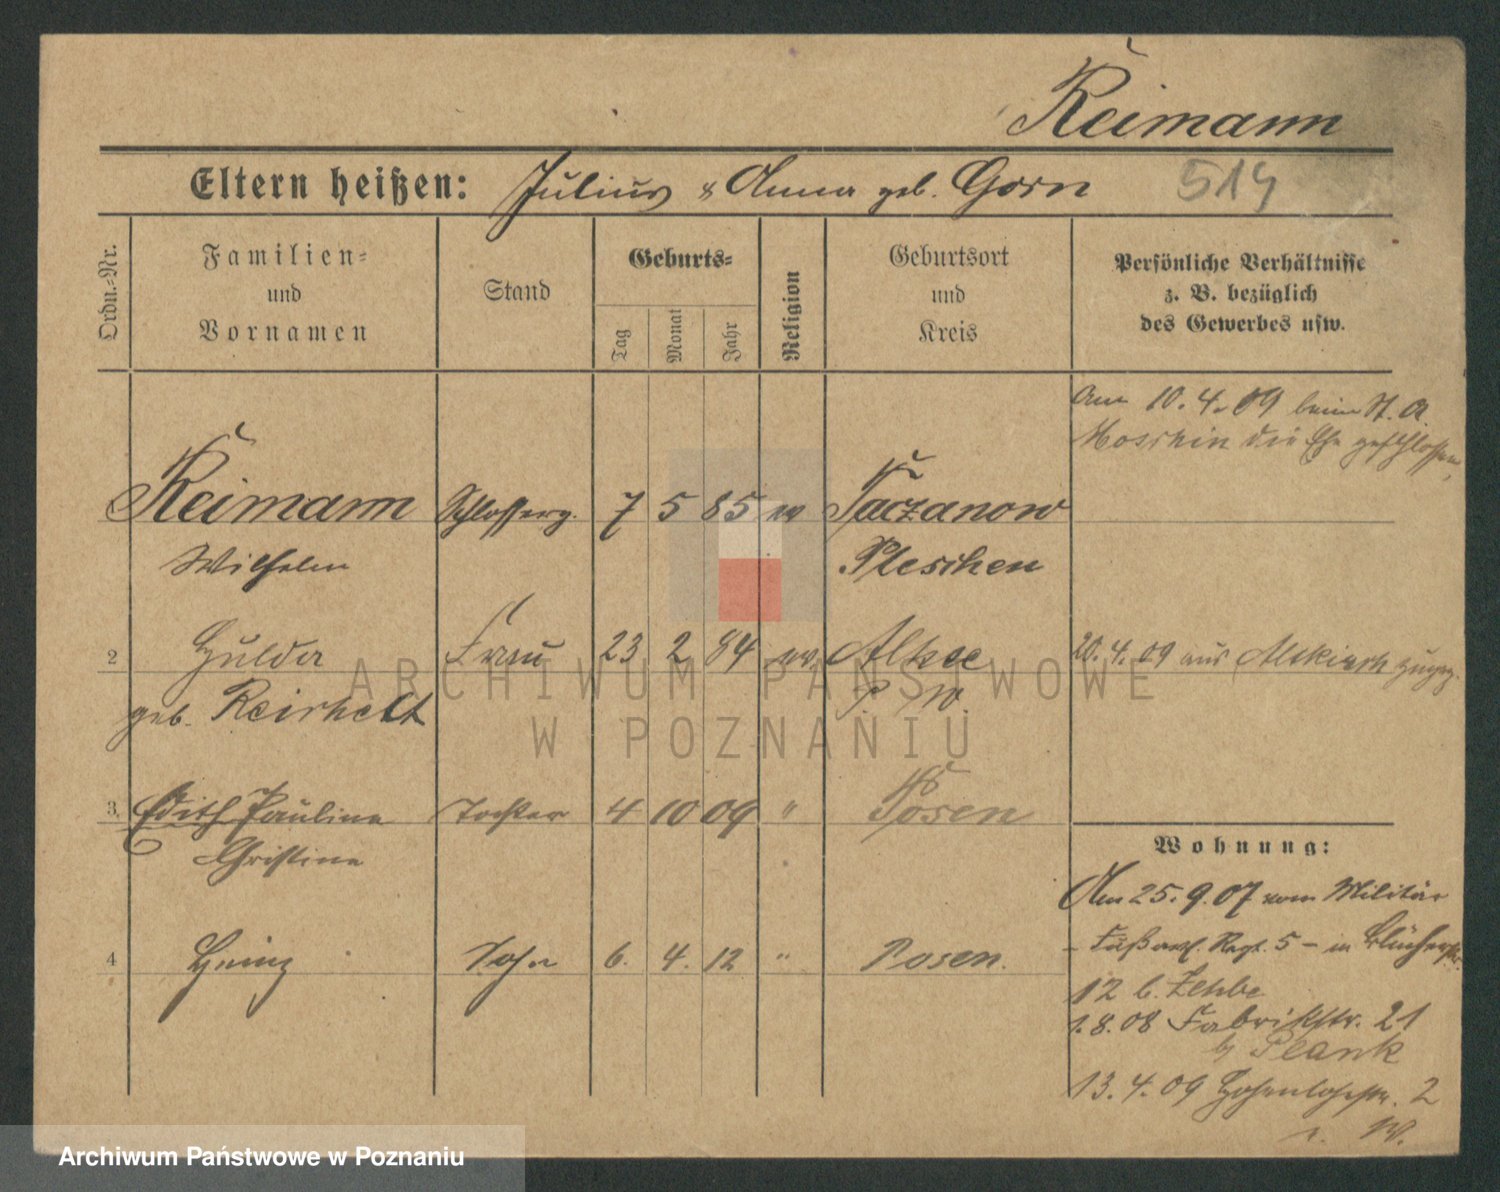 Reimann
Eltern heißen: Julius & Anna geb. Gorn 514
Ordn.-Nr.
Familien-
und
Vornamen
Stand
Geburts-
Tag
Monat
Jahr
Religion
Geburtsort
und
Kreis
Persönliche Verhältnisse
z. B. bezüglich
des Gewerbes usw.
Am 10.4.09 beim St. A.
Moschin die Ehe geschlossen
Reimann Schlosserg. 7 5 85 ev Taczanow
Wilhelm Pleschen
2 Hulda Frau 23 2 84 ev.
geb. Reichelt P. W.
20.4.09 aus Altkirch zugez.
3. Edith Pauline Tochter 4 10 09 " Posen
Christine
4 Heinz Sohn 6. 4. 12 " Posen.
Wohnung:
Am 25.9.07 vom Militär
- Fußart. Regt. 5 - in Blücherstr.
12 b.
1.8.08 Fabrikstr. 21
b/ Plank
13.4.09 Hohenlohestr. 2
ARCHIWUM PAŃSTWOWE
W POZNANIU
Archiwum Państwowe w Poznaniu